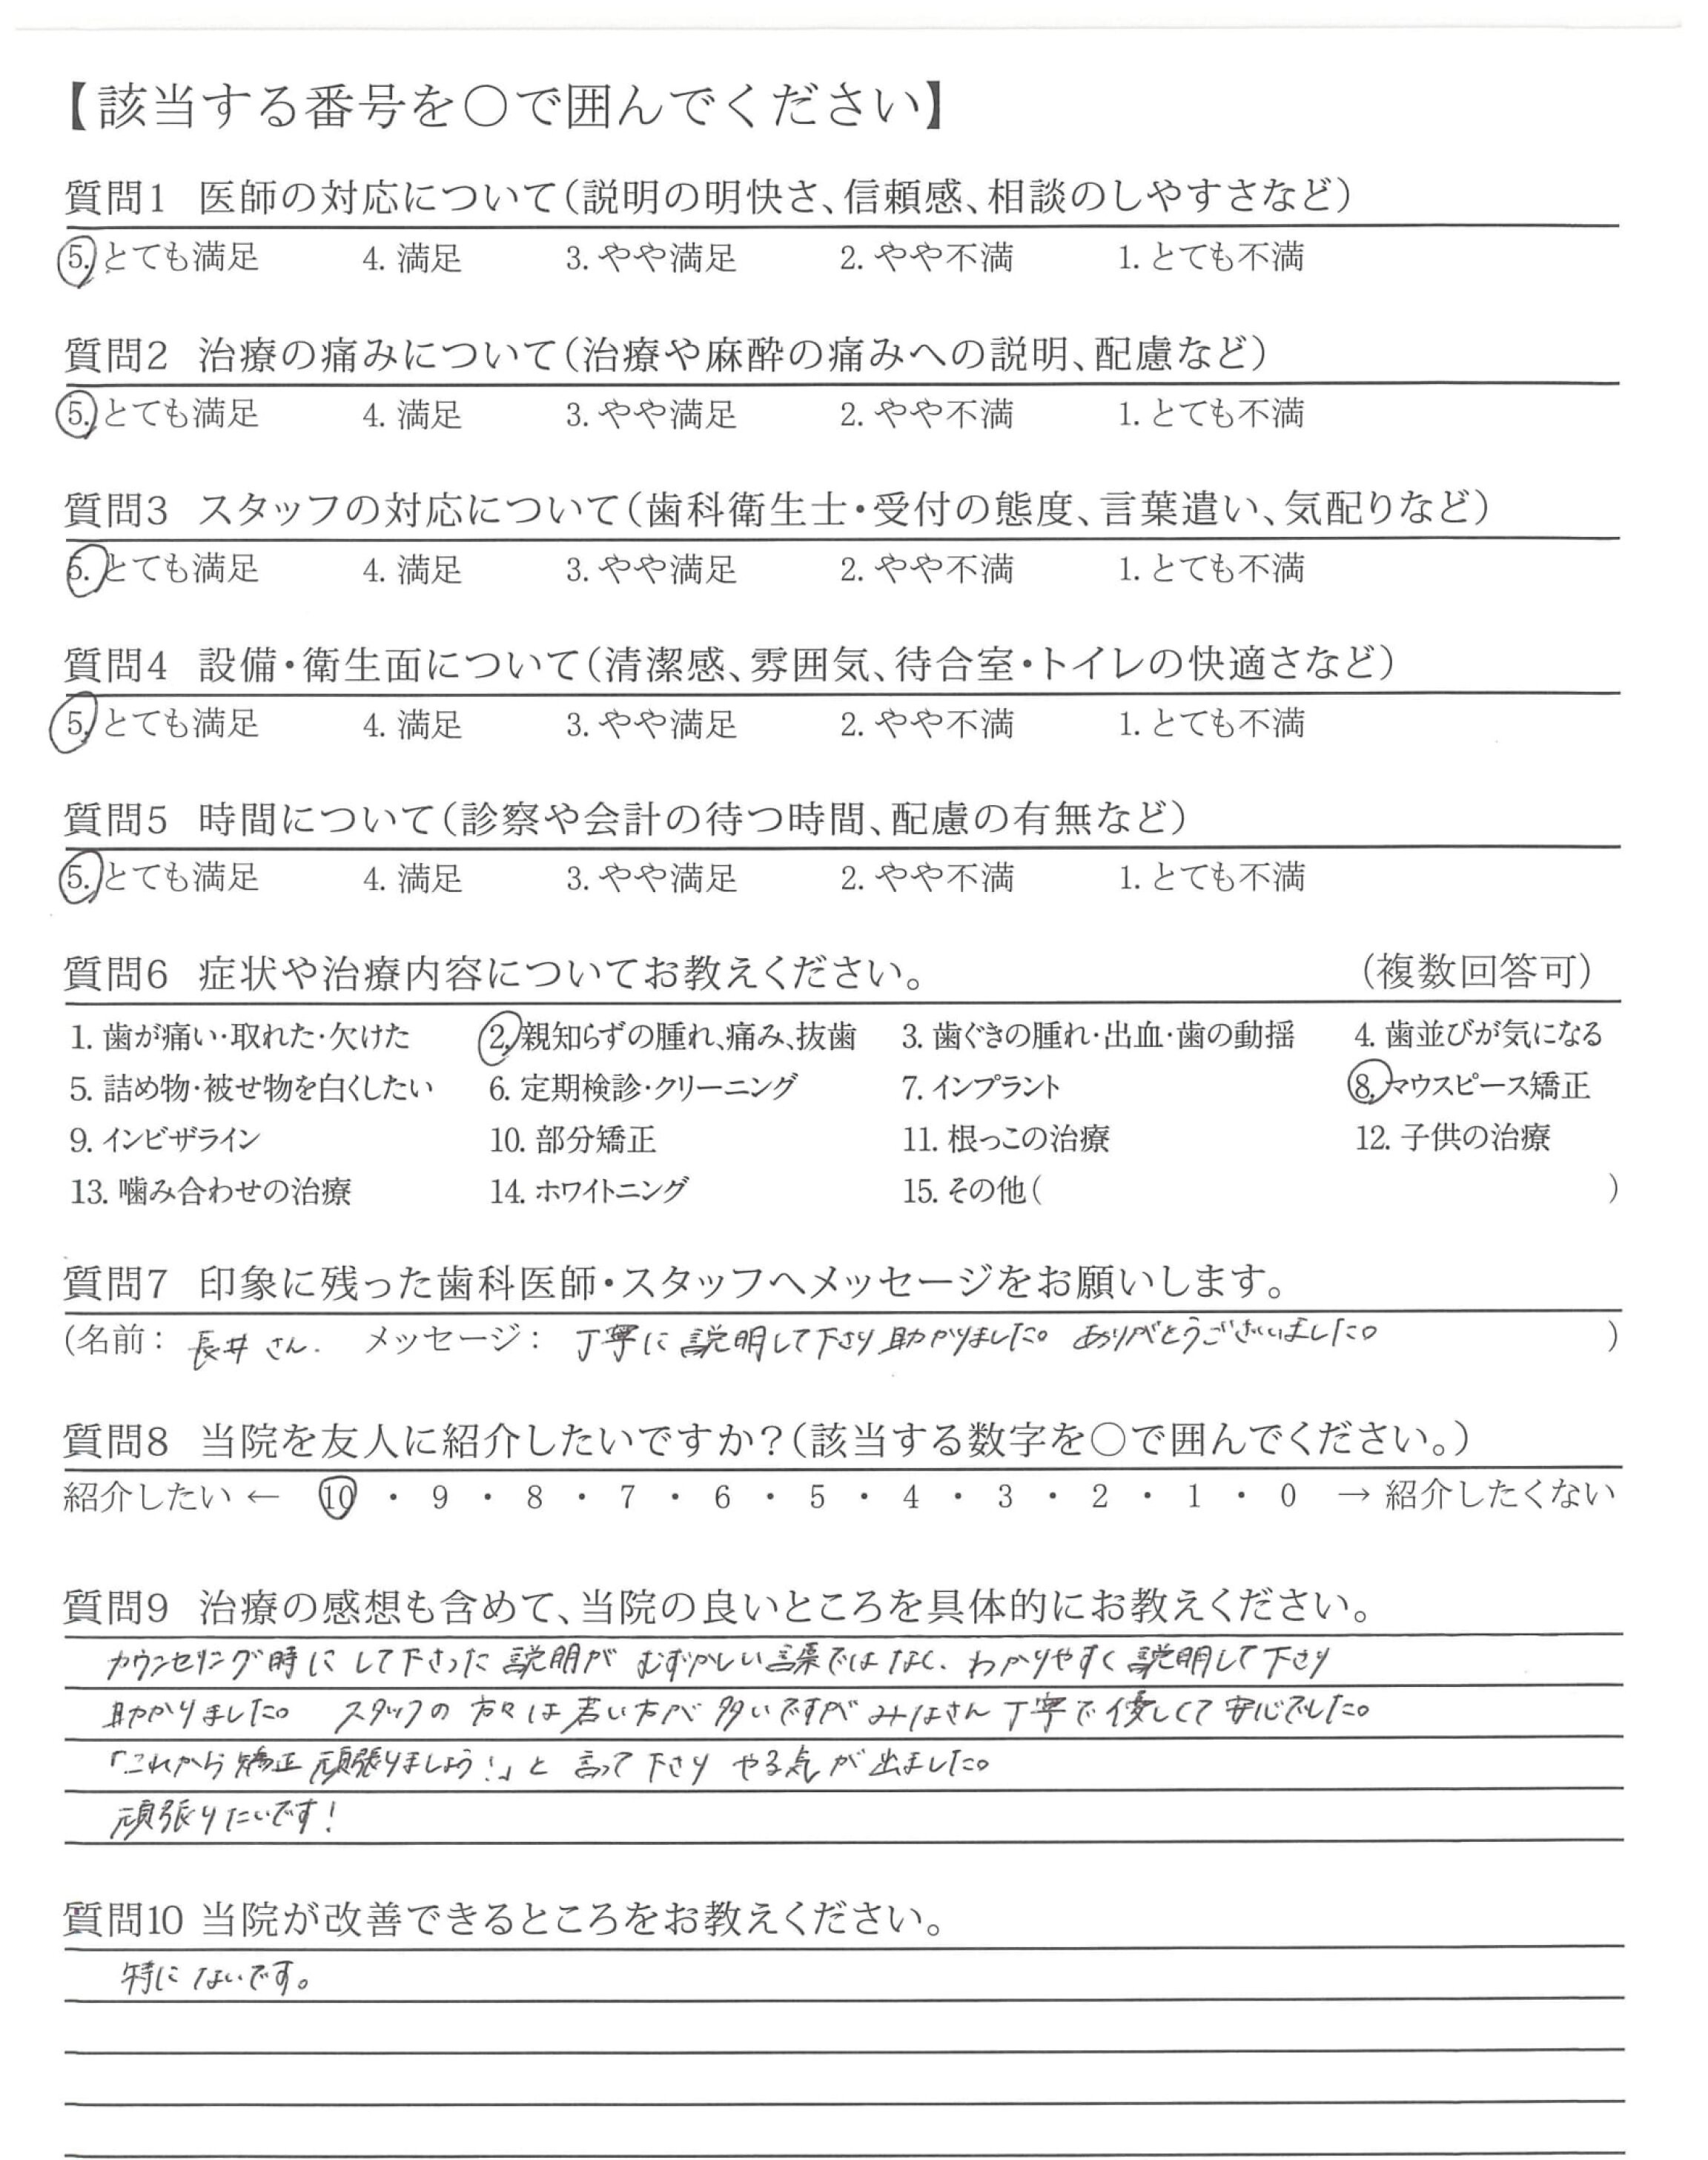 【該当する番号を○で囲んでください】
質問1 医師の対応について(説明の明快さ、信頼感、相談のしやすさなど)
5. とても満足 4. 満足 3. やや満足 2. やや不満 1. とても不満
質問2 治療の痛みについて(治療や麻酔の痛みへの説明、配慮など)
5. とても満足 4. 満足 3. やや満足 2. やや不満 1. とても不満
質問3 スタッフの対応について(歯科衛生士・受付の態度、言葉遣い、気配りなど)
5. とても満足 4. 満足 3. やや満足 2. やや不満 1. とても不満
質問4 設備・衛生面について(清潔感、雰囲気、待合室・トイレの快適さなど)
5. とても満足 4. 満足 3. やや満足 2. やや不満 1. とても不満
質問5 時間について(診察や会計の待つ時間、配慮の有無など)
5. とても満足 4. 満足 3. やや満足 2. やや不満 1. とても不満
質問6 症状や治療内容についてお教えください。 (複数回答可)
1. 歯が痛い・取れた・欠けた 2. 親知らずの腫れ、痛み、抜歯 3. 歯ぐきの腫れ・出血・歯の動揺 4. 歯並びが気になる
5. 詰め物・被せ物を白くしたい 6. 定期検診・クリーニング 7. インプラント 8. マウスピース矯正
9. インビザライン 10. 部分矯正 11. 根っこの治療 12. 子供の治療
13. 噛み合わせの治療 14. ホワイトニング 15. その他( )
質問7 印象に残った歯科医師・スタッフへメッセージをお願いします。
(名前: 長井さん. メッセージ: 丁寧に説明して下さり助かりました。ありがとうございました。 )
質問8 当院を友人に紹介したいですか?(該当する数字を○で囲んでください。)
紹介したい ← 10 ・ 9 ・ 8 ・ 7 ・ 6 ・ 5 ・ 4 ・ 3 ・ 2 ・ 1 ・ 0 → 紹介したくない
質問9 治療の感想も含めて、当院の良いところを具体的にお教えください。
カウンセリング時にして下さった説明がむずかしい言葉ではなく、わかりやすく説明して下さり
助かりました。 スタッフの方々は若い方が多いですがみなさん丁寧で優しくて安心でした。
「これから矯正頑張りましょう!」と言って下さりやる気が出ました。
頑張りたいです!
質問10 当院が改善できるところをお教えください。
特にないです。